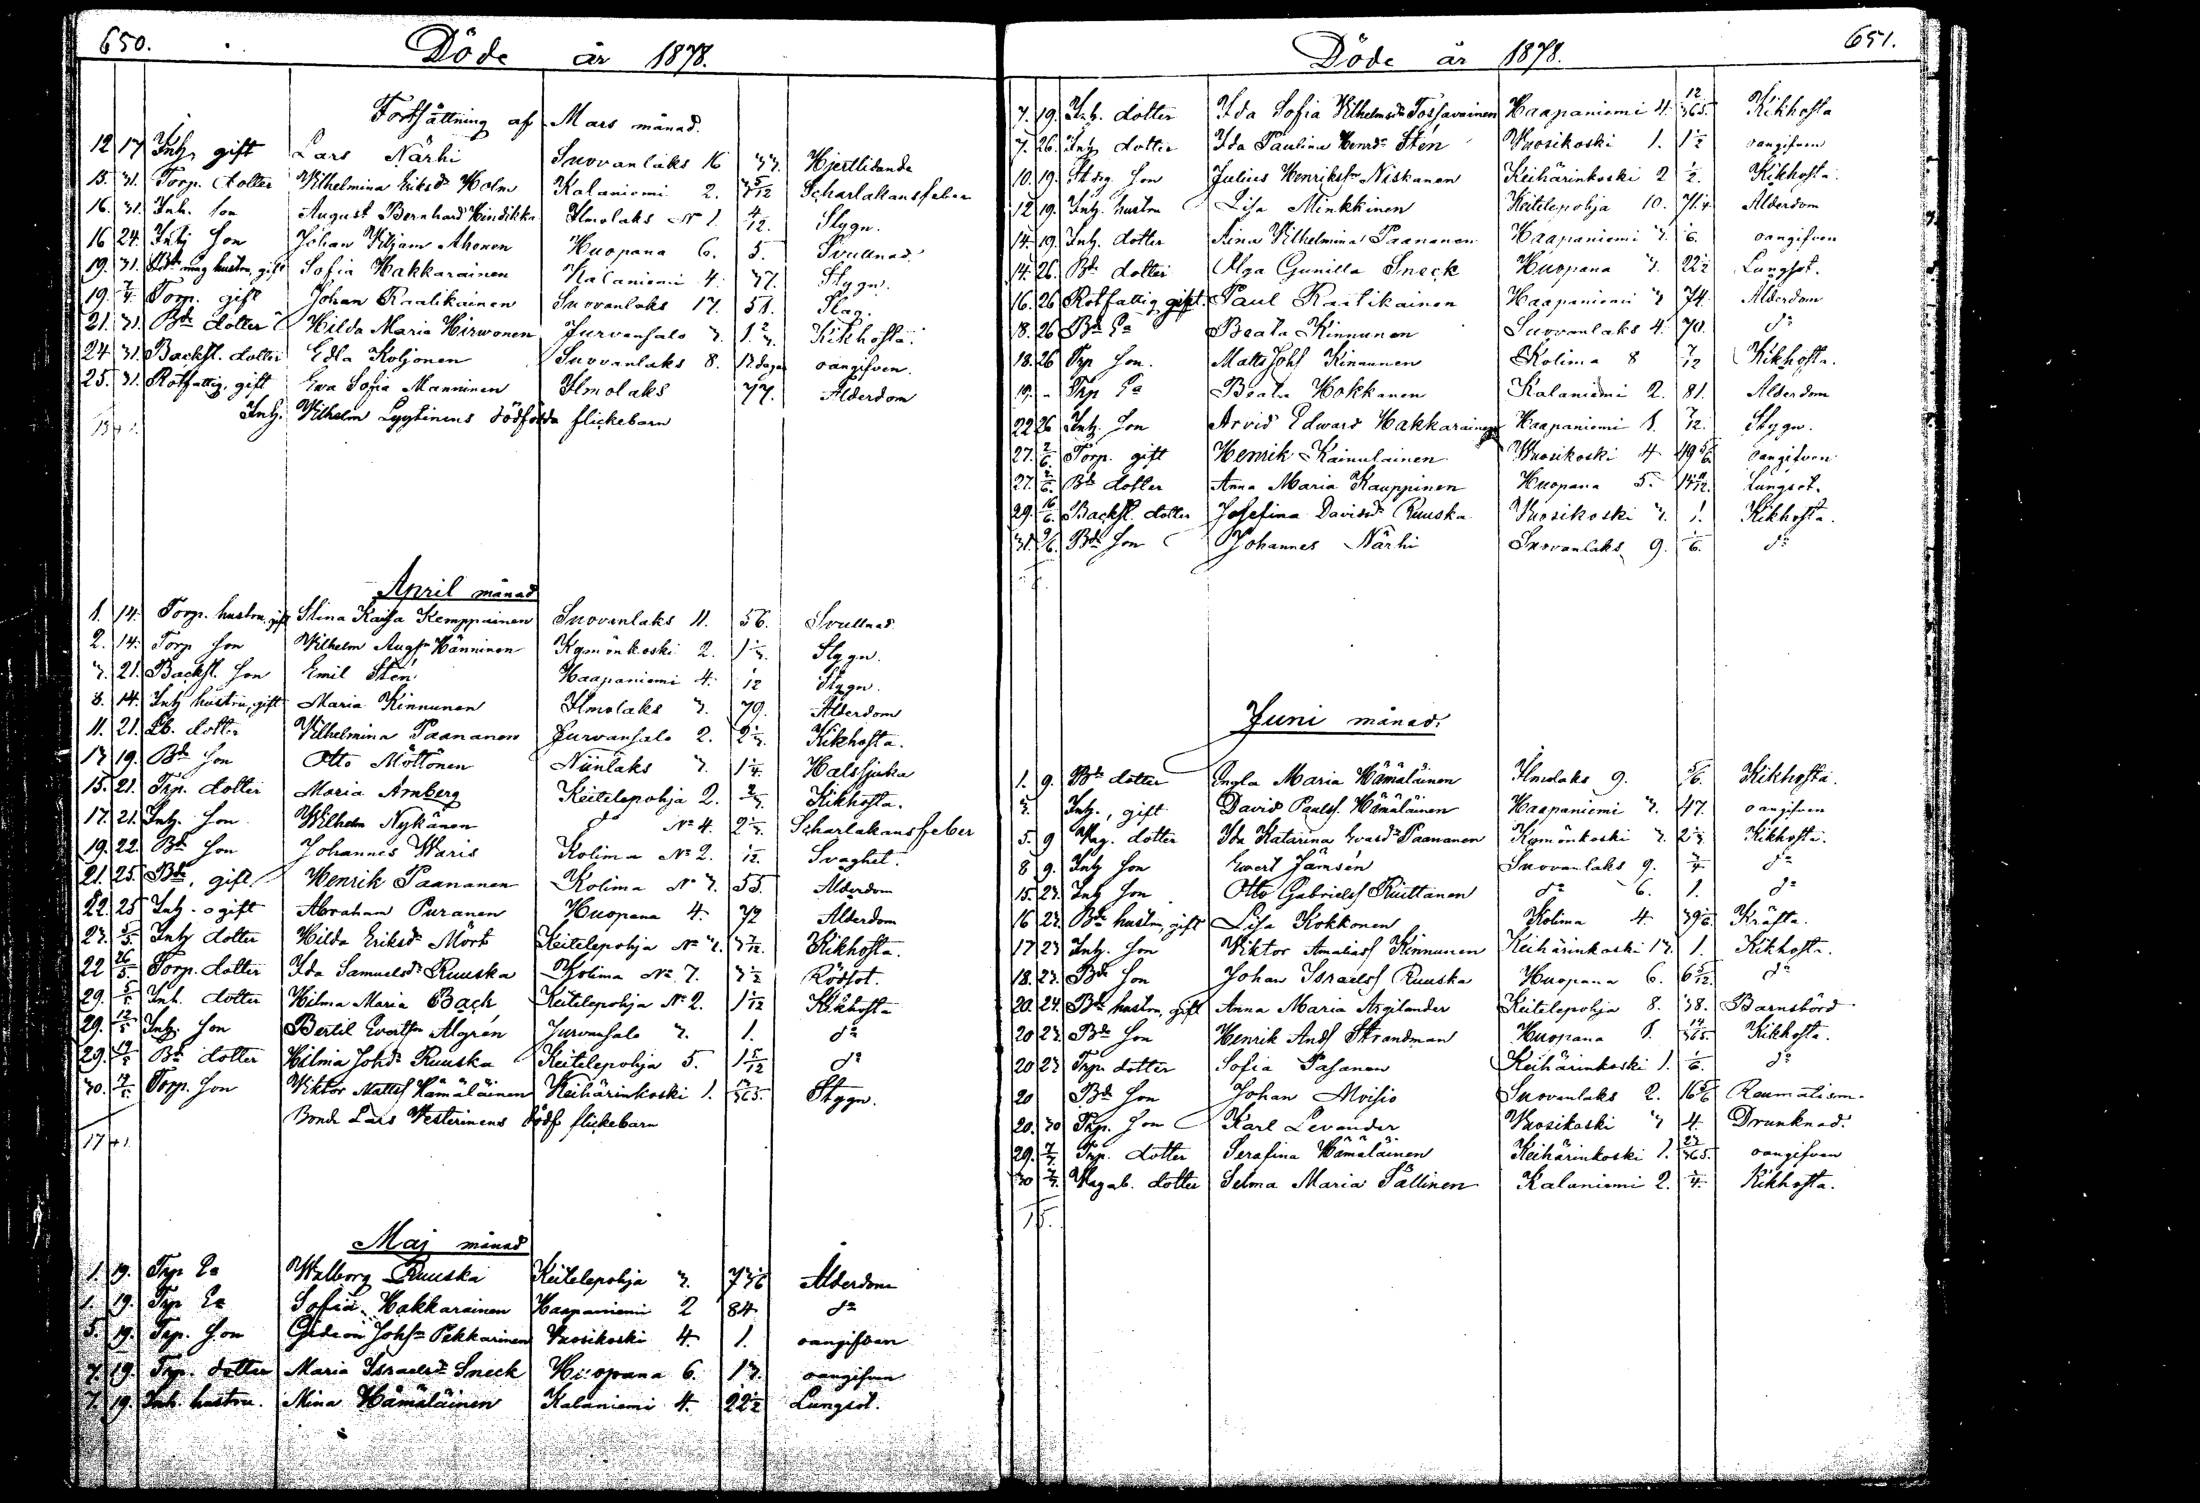 650.
Döde år 1878.
Fortsättning af Mars månad.
12 17 Inh. gift Lars Närhi Suovanlaks 16 33 Hjertlidande
15. 31. Torp. dotter Vilhelmina Eriksdr Holm Kalaniemi 2. 3 5/12 Scharlakansfeber
16. 31. Inh. son August Bernhard Hindikka Ilmolaks No 1. 4/12 Stygn.
16 24. Inh son Johan Viljam Ahonen Huopana 6. 5. Svullnad
19. 31. hustru, gift Sofia Hakkarainen Kalaniemi 4. 37. Stygn.
19. 7/4 Torp. gift Johan Raatikainen Suovanlaks 17. 51. Slag.
21. 31. Bde dotter Hilda Maria Hirwonen Jurvansalo 3. 1 2/3 Kikhosta.
24 31. Backst. dotter Edla Koljonen Suovanlaks 8. 12 dagar oangifven.
25. 31. Rotfattig, gift Ewa Sofia Manninen Ilmolaks 77. Ålderdom
Inh. Vilhelm Lyytinens dödfödda flickebarn
13 + 1.
April månad
1. 14. Torp. hustru, gift Stina Kaisa Kemppainen Suovanlaks 11. 56. Svullnad
2. 14. Torp son Wilhelm Augsn Hänninen Kymönkoski 2. 1 1/3. Stygn.
3. 21. Backst. son Emil Stén Haapaniemi 4. 1/12 Stygn.
8. 14. Inh hustru, gift Maria Kinnunen Ilmolaks 3. 79. Ålderdom
11. 21. Lb. dotter Vilhelmina Paananen Jurvansalo 2. 2 1/3. Kikhosta.
13 19. Bde son Otto Möttönen Niinlaks 3. 1 1/4. Halssjuka
15. 21. Trp. dotter Maria Arnberg Keitelepohja 2. 2/3. Kikhosta.
17. 21. Inh. son Wilhelm Nykänen do No 4. 2 1/3. Scharlakansfeber
19. 22. Bde son Johannes Waris Kolima No 2. 1/12. Svaghet.
21. 25. Bde, gift Henrik Paananen Kolima No 3. 55. Ålderdom
22. 25 Inh. ogift Abraham Puranen Huopana 4. 72 Ålderdom
23. 5/5. Inh dotter Hilda Eriksdr Mört Keitelepohja No 3. 3 7/12. Kikhosta.
22 26/5. Torp. dotter Ida Samuelsdr Ruuska Kolima No 7. 3 1/2 Rödsot.
29. 5/5. Inh. dotter Hilma Maria Back Keitelepohja No 2. 1 1/12 Kikhosta
29. 12/5 Inh. son Bertil Evertsn Algrén Jurvansalo 3. 1. do
29. 19/5 Bde dotter Hilma Johsdr Ruuska Keitelepohja 5. 1 5/12 do
30. Torp. son Viktor Mattss Hämäläinen Keihärinkoski 1. 13/365. Stygn.
Bonde Lars Westerinens dödf flickebarn
17 + 1.
Maj månad
1. 19. Trp Ea Walborg Ruuska Keitelepohja 3. 73 1/6 Ålderdom
1. 19. Trp Ea Sofia Hakkarainen Haapaniemi 2 84 do
5. 19. Trp. son Gideon Johsn Pekkarinen Vuosikoski 4. 1. oangifven
7. 19. Trp. dotter Maria Israelsdr Sneck Huopana 6. 13. oangifven
7. 19. Inh. hustru. Mina Hämäläinen Kalaniemi 4. 22 1/2 Lungsot.
651.
Döde år 1878.
7. 19. Inh. dotter Ida Sofia Vilhelmsdr Tossavainen Haapaniemi 4. 12/365. Kikhosta
7. 26. Inh dotter Ida Paulina Henrdr Stén Vuosikoski 1. 1 1/2 oangifven
10. 19. Stdrg son Julius Henrikssn Niskanen Keihärinkoski 2 1/2. Kikhosta.
12 19. Inh. hustru Lisa Minkkinen Keitelepohja 10. 71 Ålderdom
14. 19. Inh. dotter Aina Vilhelmina Paananen Haapaniemi 3. 6. oangifven
14. 26. Bde dotter Olga Gunilla Sneck Huopana 3. 22 1/2 Lungsot.
16. 26 Rotfattig gift. Paul Raatikainen Haapaniemi 3 74. Ålderdom
18. 26 Bde Ea Beata Kinnunen Suovanlaks 4. 70. do
18. 26 Trp son. Matts Johss Kinnunen Kolima 8 7/12 Kikhosta.
19. - Trp Ea Beata Hokkanen Kalaniemi 2. 81. Ålderdom
22 26 Inh. son Arvid Edward Hakkarainen Haapaniemi 1. 7/12. Stygn.
27. 2/6. Torp. gift Henrik Kainulainen Vuosikoski 4 49 5/6. oangifven
27. 2/6. Bde dotter Anna Maria Kauppinen Huopana 5. Lungsot.
29. 16/6. Backst. dotter Josefina Davidsdr Ruuska Vuosikoski 3. 1. Kikhosta.
31. 9/6. Bde son Johannes Närhi Suovanlaks 9. 1/6. do
Juni månad.
1. 9. Bde dotter Engla Maria Hämäläinen Ilmolaks 9. 5/6. Kikhosta.
3. Inh., gift David Paulss. Hämäläinen Haapaniemi 3. 47. oangifven
5. 9 Vag. dotter Ida Katarina Evardsdr Paananen Kymönkoski 3 2 1/3 Kikhosta.
8 9. Inh son Evert Jämsén Suovanlaks 9. 3/4 do
15. 23. Inh son Otto Gabrielss Riuttanen do 6. 1. do
16 23. Bde hustru, gift Lisa Kokkonen Kolima 4. 39 1/6. Kräfta.
17 23 Inh. son Viktor Amaliass Kinnunen Keihärinkoski 13. 1. Kikhosta.
18. 23. Bde son Johan Israelss Ruuska Huopana 6. 6 5/12. do
20. 24. Bde hustru, gift Anna Maria Argilander Keitelepohja 8. 38. Barnsbörd
20 23. Bde son Henrik Andss Strandman Huopana 1. 14/365. Kikhosta.
20 23 Trp. dotter Sofia Pasanen Keihärinkoski 1. 1/6. do
20 Bde son Johan Moisio Suovanlaks 2. 16 5/6 Reumatism.
20. 30 Trp. son Karl Levander Vuosikoski 3 4. Drunknad.
29. 7/7. Trp. dotter Serafina Hämäläinen Keihärinkoski 1. 23/365. oangifven
30 7/7. Vagab. dotter Selma Maria Sällinen Kalaniemi 2. 3/4. Kikhosta.
15.